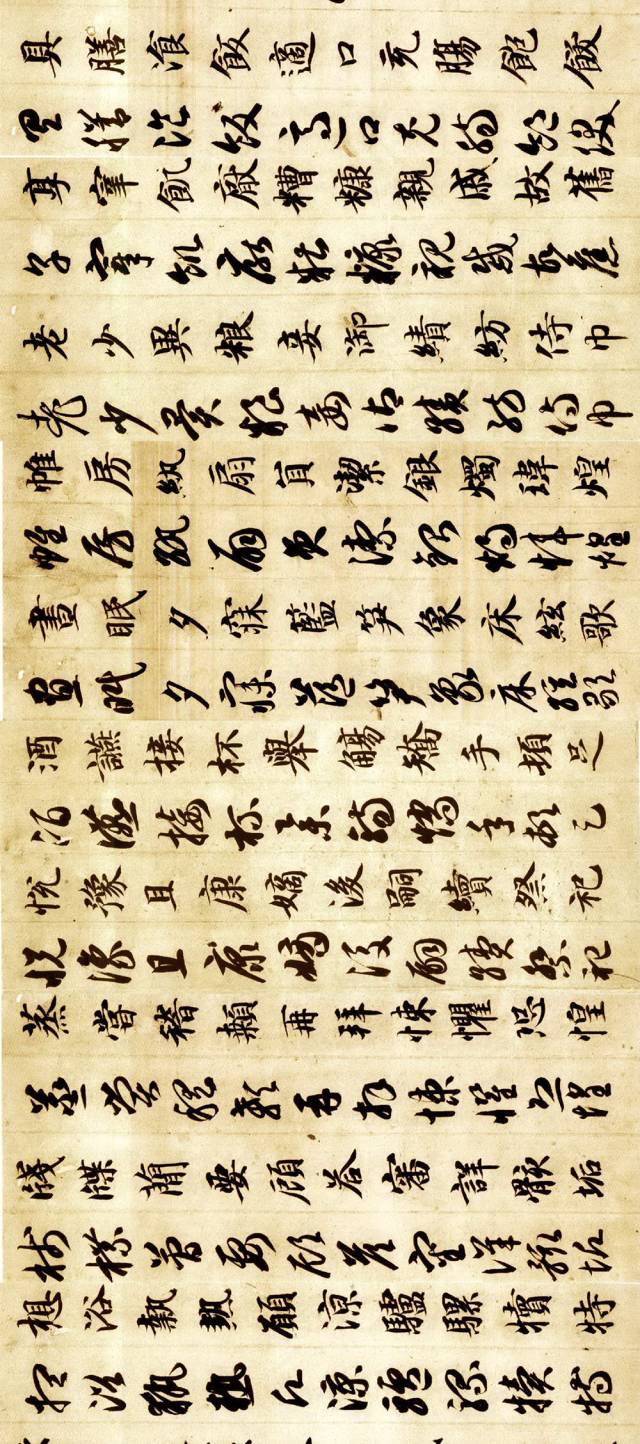 具膳湌飯適口充腸飽飫
具膳湌飯適口充腸飽飫
享宰飢厭糟糠親戚故舊
享宰飢厭糟糠親戚故舊
老少異粮妾御績紡侍巾
老少異粮妾御績紡侍巾
帷房紈扇員潔銀燭瑋煌
帷房紈扇員潔銀燭瑋煌
晝眠夕寐藍笋象床絃歌
晝眠夕寐藍笋象床絃歌
酒讌接杯舉觴矯手頓足
酒讌接杯舉觴矯手頓足
悅豫且康嫡後嗣續祭祀
悅豫且康嫡後嗣續祭祀
蒸嘗稽顙再拜悚懼恐惶
蒸嘗稽顙再拜悚懼恐惶
牋牒簡要顧荅審詳骸垢
牋牒簡要顧荅審詳骸垢
想浴執熱願涼驢騾犢特
想浴執熱願涼驢騾犢特